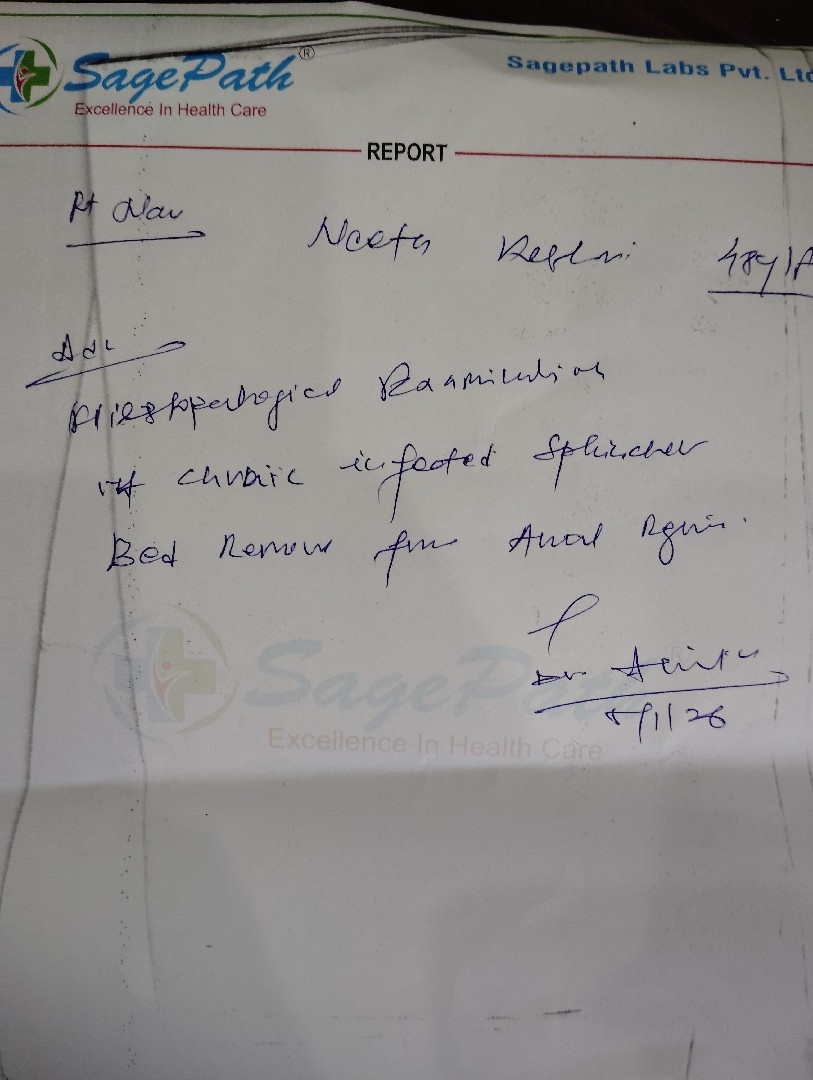 SagePath®
Excellence In Health Care
Sagepath Labs Pvt. Ltd
REPORT
Pt
Adv
Histopathological Examination
of chronic infected Sphincter
Bed Remov from Anal Regin.
Dr.
5/1/26
SagePath®
Excellence In Health Care